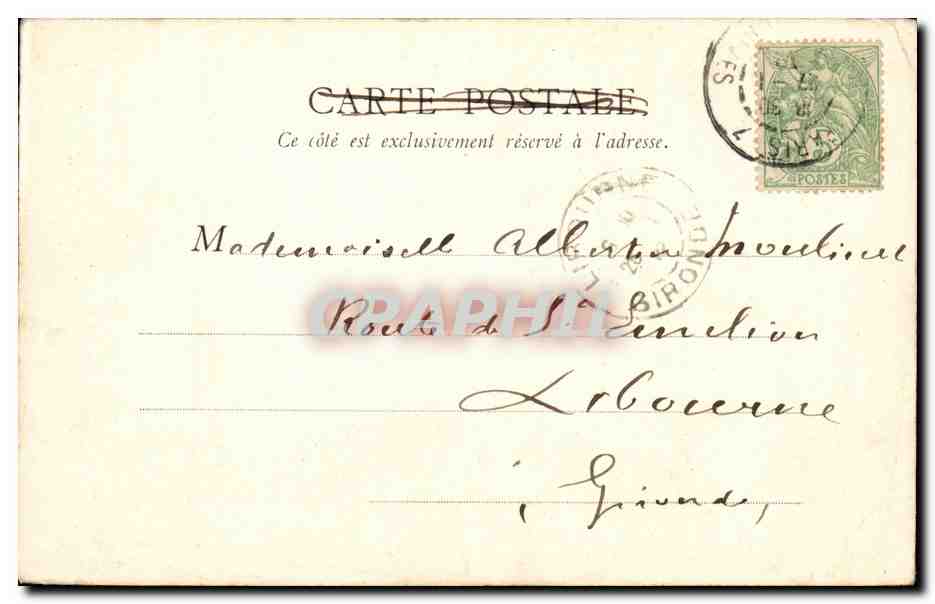 CARTE POSTALE
Ce côté est exclusivement réservé à l'adresse.
POSTES
LIBOURNE
GIRONDE
Mademoiselle
Route de St Emilion
Libourne
Gironde
GRAPHII